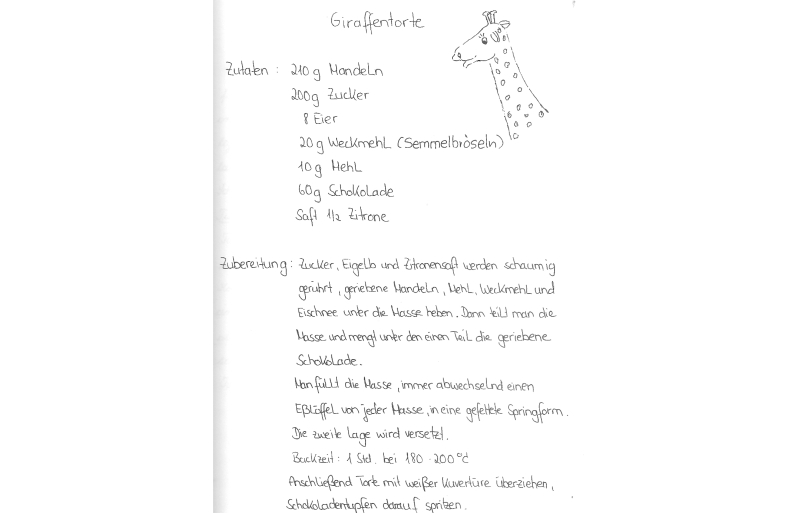 Giraffentorte
Zutaten : 210 g Mandeln
200g Zucker
8 Eier
20 g Weckmehl (Semmelbröseln)
10 g Mehl
60g Schokolade
Saft 1/2 Zitrone
Zubereitung : Zucker, Eigelb und Zitronensaft werden schaumig
gerührt, geriebene Mandeln, Mehl, Weckmehl und
Eischnee unter die Masse heben. Dann teilt man die
Masse und mengt unter den einen Teil die geriebene
Schokolade.
Man füllt die Masse, immer abwechselnd einen
Eßlöffel von jeder Masse, in eine gefettete Springform.
Die zweite Lage wird versetzt.
Backzeit: 1 Std. bei 180 - 200°C
Anschließend Torte mit weißer Kuvertüre überziehen,
Schokoladentupfen darauf spritzen.